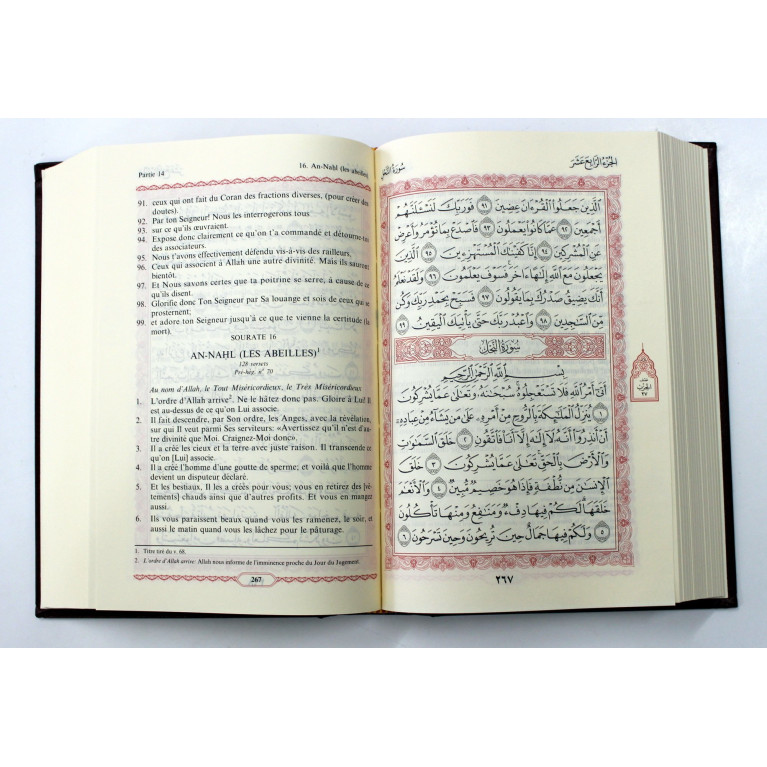 Partie 14
16. An-Naḥl (les abeilles)
91. ceux qui ont fait du Coran des fractions diverses, (pour créer des
doutes).
92. Par ton Seigneur! Nous les interrogerons tous
93. sur ce qu'ils œuvraient.
94. Expose donc clairement ce qu'on t'a commandé et détourne-toi
des associateurs.
95. Nous t'avons effectivement défendu vis-à-vis des railleurs,
96. Ceux qui associent à Allah une autre divinité. Mais ils sauront
bientôt.
97. Et Nous savons certes que ta poitrine se serre, à cause de ce
qu'ils disent.
98. Glorifie donc Ton Seigneur par Sa louange et sois de ceux qui se
prosternent;
99. et adore ton Seigneur jusqu'à ce que te vienne la certitude (la
mort).
SOURATE 16
AN-NAḤL (LES ABEILLES)¹
128 versets
Pré-hég. n° 70
Au nom d'Allah, le Tout Miséricordieux, le Très Miséricordieux
1. L'ordre d'Allah arrive². Ne le hâtez donc pas. Gloire à Lui! Il
est au-dessus de ce qu'on Lui associe.
2. Il fait descendre, par Son ordre, les Anges, avec la révélation,
sur qui Il veut parmi Ses serviteurs: «Avertissez qu'il n'est d'au-
tre divinité que Moi. Craignez-Moi donc».
3. Il a créé les cieux et la terre avec juste raison. Il transcende ce
qu'on [Lui] associe.
4. Il a créé l'homme d'une goutte de sperme; et voilà que l'homme
devient un disputeur déclaré.
5. Et les bestiaux, Il les a créés pour vous; vous en retirez des [vê-
tements] chauds ainsi que d'autres profits. Et vous en mangez
aussi.
6. Ils vous paraissent beaux quand vous les ramenez, le soir, et
aussi le matin quand vous les lâchez pour le pâturage.
1. Titre tiré du v. 68.
2. L'ordre d'Allah arrive: Allah nous informe de l'imminence proche du Jour du Jugement.
267
الجزء الرابع عشر
سورة النحل
ٱلَّذِينَ جَعَلُوا۟ ٱلْقُرْءَانَ عِضِينَ ٩١ فَوَرَبِّكَ لَنَسْـَٔلَنَّهُمْ
أَجْمَعِينَ ٩٢ عَمَّا كَانُوا۟ يَعْمَلُونَ ٩٣ فَٱصْدَعْ بِمَا تُؤْمَرُ وَأَعْرِضْ
عَنِ ٱلْمُشْرِكِينَ ٩٤ إِنَّا كَفَيْنَـٰكَ ٱلْمُسْتَهْزِءِينَ ٩٥ ٱلَّذِينَ
يَجْعَلُونَ مَعَ ٱللَّهِ إِلَـٰهًا ءَاخَرَ فَسَوْفَ يَعْلَمُونَ ٩٦ وَلَقَدْ نَعْلَمُ
أَنَّكَ يَضِيقُ صَدْرُكَ بِمَا يَقُولُونَ ٩٧ فَسَبِّحْ بِحَمْدِ رَبِّكَ وَكُن
مِّنَ ٱلسَّـٰجِدِينَ ٩٨ وَٱعْبُدْ رَبَّكَ حَتَّىٰ يَأْتِيَكَ ٱلْيَقِينُ ٩٩
سورة النحل
بِسْمِ ٱللَّهِ ٱلرَّحْمَـٰنِ ٱلرَّحِيمِ
أَتَىٰٓ أَمْرُ ٱللَّهِ فَلَا تَسْتَعْجِلُوهُ سُبْحَـٰنَهُۥ وَتَعَـٰلَىٰ عَمَّا يُشْرِكُونَ
١ يُنَزِّلُ ٱلْمَلَـٰٓئِكَةَ بِٱلرُّوحِ مِنْ أَمْرِهِۦ عَلَىٰ مَن يَشَآءُ مِنْ عِبَادِهِۦٓ
أَنْ أَنذِرُوٓا۟ أَنَّهُۥ لَآ إِلَـٰهَ إِلَّآ أَنَا۠ فَٱتَّقُونِ ٢ خَلَقَ ٱلسَّمَـٰوَٰتِ
وَٱلْأَرْضَ بِٱلْحَقِّ تَعَـٰلَىٰ عَمَّا يُشْرِكُونَ ٣ خَلَقَ
ٱلْإِنسَـٰنَ مِن نُّطْفَةٍ فَإِذَا هُوَ خَصِيمٌ مُّبِينٌ ٤ وَٱلْأَنْعَـٰمَ
خَلَقَهَا لَكُمْ فِيهَا دِفْءٌ وَمَنَـٰفِعُ وَمِنْهَا تَأْكُلُونَ
٥ وَلَكُمْ فِيهَا جَمَالٌ حِينَ تُرِيحُونَ وَحِينَ تَسْرَحُونَ ٦
٢٦٧